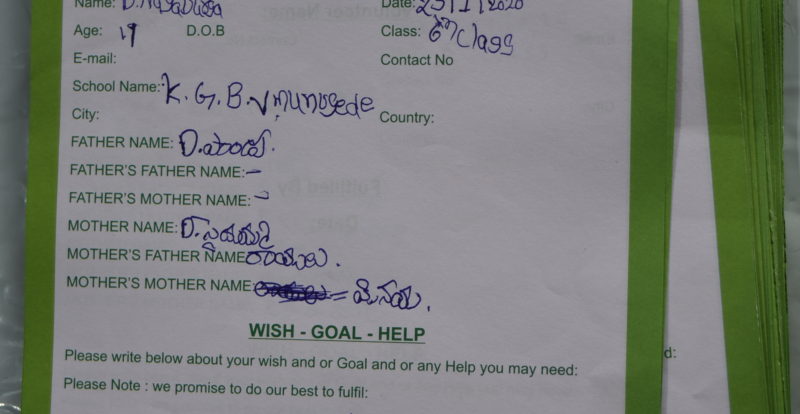 Name: D.
Date: 23/1/2020
Age: 19 D.O.B Class: 6th Class
E-mail: Contact No
School Name: K. G. B. V munugede
City: Country:
FATHER NAME: D.
FATHER'S FATHER NAME: –
FATHER'S MOTHER NAME: –
MOTHER NAME: D.
MOTHER'S FATHER NAME
MOTHER'S MOTHER NAME: =
WISH - GOAL - HELP
Please write below about your wish and or Goal and or any Help you may need:
d:
Please Note : we promise to do our best to fulfil: